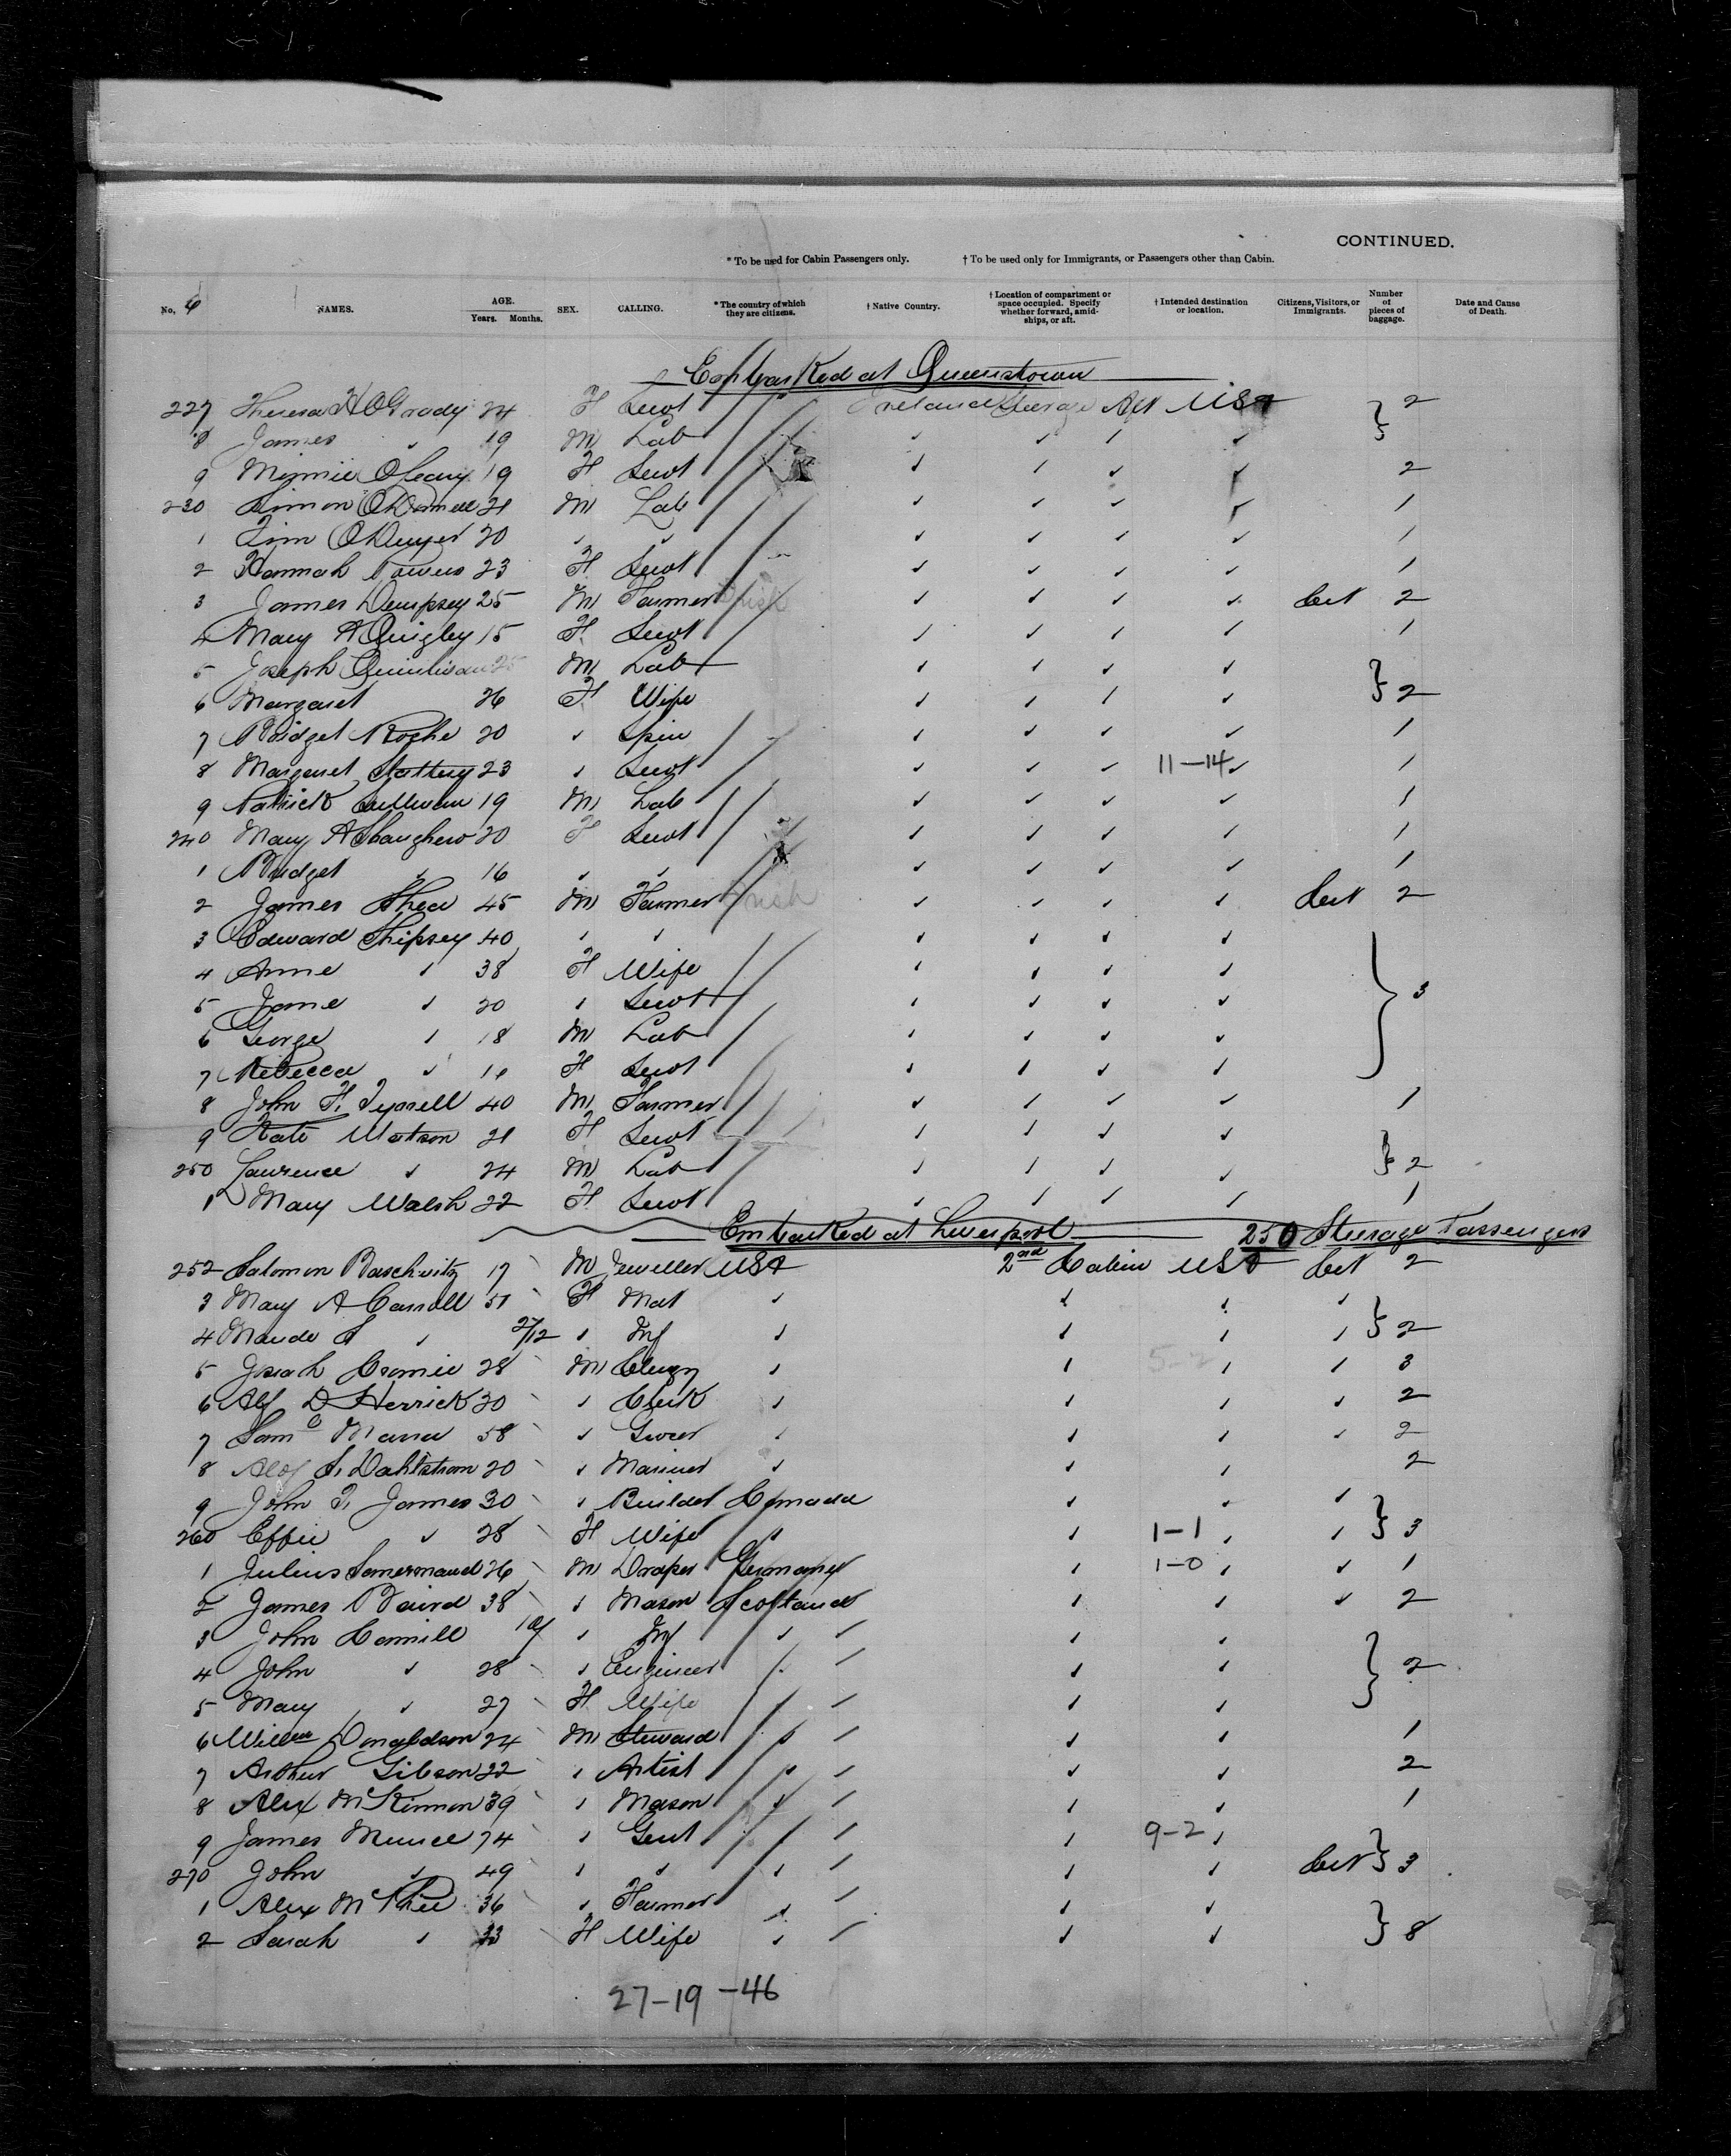 CONTINUED.
* To be used for Cabin Passengers only. † To be used only for Immigrants, or Passengers other than Cabin.
No. 6 NAMES. AGE. Years. Months. SEX. CALLING. * The country of which they are citizens. † Native Country. † Location of compartment or space occupied. Specify whether forward, amidships, or aft. † Intended destination or location. Citizens, Visitors, or Immigrants. Number of pieces of baggage. Date and Cause of Death.
Embarked at Queenstown
227 Theresa O'Grady 24 F Servt Ireland Steerage Aft USA } 2
8 James " 19 M Lab
9 Minnie O'Leary 19 F Servt 2
230 Simon O'Donnell 21 M Lab 1
1 Tim O'Dwyer 20 " " 1
2 Hannah Powers 23 F Servt 1
3 James Dempsey 25 M Farmer Irish Cit 2
4 Mary A Quigley 15 F Servt 1
5 Joseph Quinlivan 25 M Lab
6 Margaret 26 F Wife } 2
7 Bridget Roche 20 " Spin 1
8 Margaret Slattery 23 " Servt 11-14 1
9 Patrick Sullivan 19 M Lab 1
240 Mary A Shaughnes 20 F Servt 1
1 Bridget " 16 " " 1
2 James Shea 45 M Farmer Irish Cit 2
3 Edward Shipsey 40 " "
4 Anne " 38 F Wife
5 Jane " 20 " Servt } 3
6 George " 18 M Lab
7 Rebecca " F Servt
8 John F. Tyrrell 40 M Farmer 1
9 Kate Watson 21 F Servt
250 Lawrence " 24 M Lab } 2
1 Mary Walsh 22 F Servt 1
Embarked at Liverpool 250 Steerage Passengers
252 Salomon Baschwitz 17 M Jeweller USA 2nd Cabin USA Cit 2
3 Mary A Carroll 51 F Mat
4 Maude S " 2/12 " Inf } 2
5 Josiah Cromie 28 M Clergy 3
6 Alf D Herrick 30 " Clerk 2
7 Saml Mann 58 " Grocer 2
8 S. Dahlstrom 20 " Mariner 2
9 John T. James 30 " Builder Canada
260 Effie " 28 F Wife " 1-1 } 3
1 Julius 26 M Draper Germany 1-0 1
2 James Baird 38 " Mason Scotland 2
3 John Cammill " Inf
4 John " 28 " Engineer } 2
5 Mary " 27 F Wife
6 Willm Donaldson 24 M Steward 1
7 Arthur Gibson 22 " Artist 2
8 Alex McKinnon 39 " Mason 1
9 James Munce 74 " Gent 9-2
270 John " 49 " " Cit } 3
1 Alex McPhee 36 " Farmer
2 Sarah " 33 F Wife } 8
27-19-46